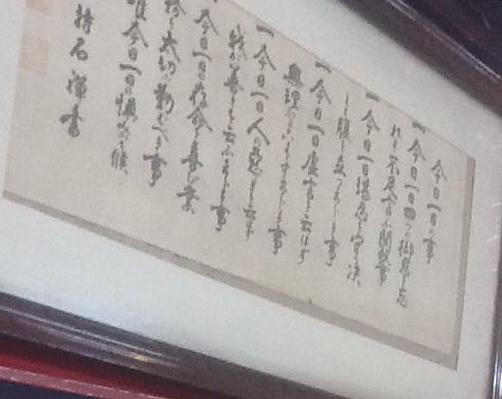 今日一日の事
一今日一日四つの御恩を忘
れず不足言ふ間敷事
一今日一日堪忍
し腹を立つまじき事
一今日一日虚言を言はず
無理なることをすまじき事
一今日一日人の悪しきを言はず
我が善きを言ふまじき事
一今日一日の存命を喜び業を
大切に勤むべき事
今日一日の慎みにて候
禅書